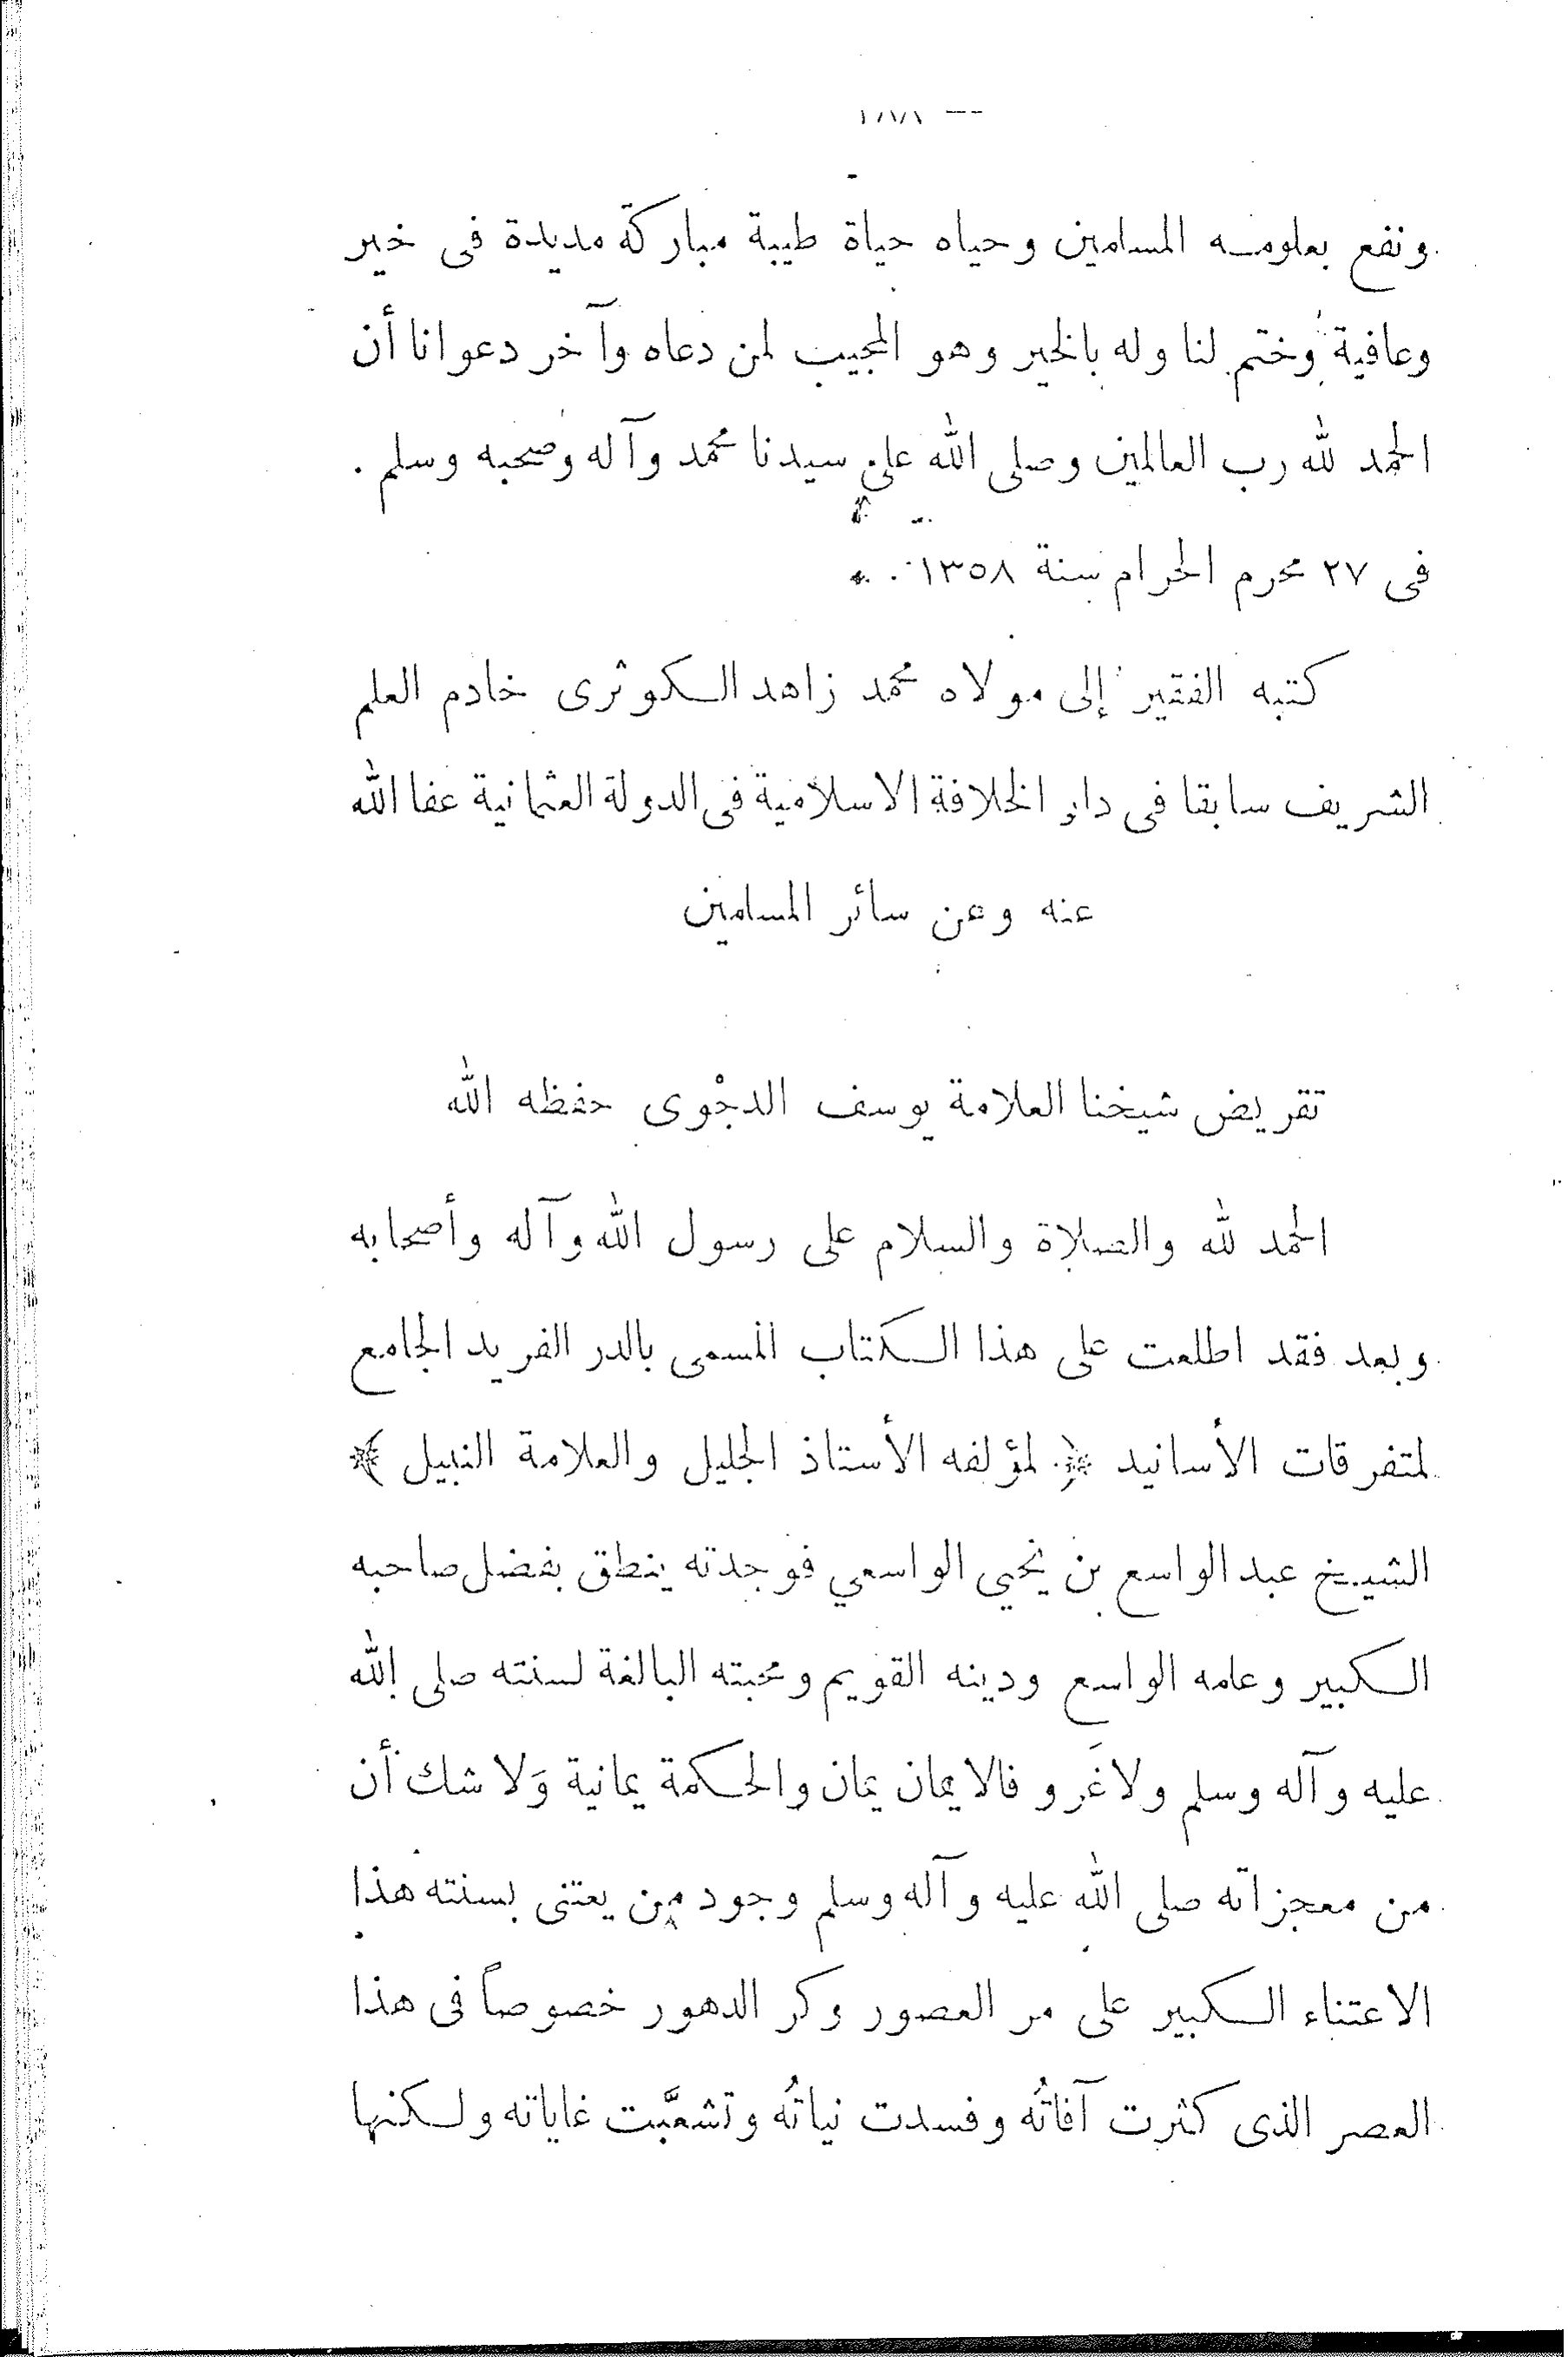 ونفع بعلومه المسلمين وحياه حياة طيبة مباركة مديدة فى خير
وعافية وختم لنا وله بالخير وهو المجيب لمن دعاه وآخر دعوانا أن
الحمد لله رب العالمين وصلى الله على سيدنا محمد وآله وصحبه وسلم .
فى ٢٧ محرم الحرام سنة ١٣٥٨
كتبه الفقير إلى مولاه محمد زاهد الكوثرى خادم العلم
الشريف سابقا فى دار الخلافة الاسلامية فى الدولة العثمانية عفا الله
عنه وعن سائر المسلمين
تقريض شيخنا العلامة يوسف الدجْوى حفظه الله
الحمد لله والصلاة والسلام على رسول الله وآله وأصحابه
وبعد فقد اطلعت على هذا الكتاب المسمى بالدر الفريد الجامع
لمتفرقات الأسانيد ﴿ لمؤلفه الأستاذ الجليل والعلامة النبيل ﴾
الشيخ عبد الواسع بن يحيي الواسعي فوجدته ينطق بفضل صاحبه
الكبير وعلمه الواسع ودينه القويم ومحبته البالغة لسنته صلى الله
عليه وآله وسلم ولا غَرو فالايمان يمان والحكمة يمانية وَلا شك أن
من معجزاته صلى الله عليه وآله وسلم وجود من يعتنى بسنته هذا
الاعتناء الكبير على مر العصور وكر الدهور خصوصاً فى هذا
العصر الذى كثرت آفاتُه وفسدت نياتُه وتشعَّبت غاياته ولكنها